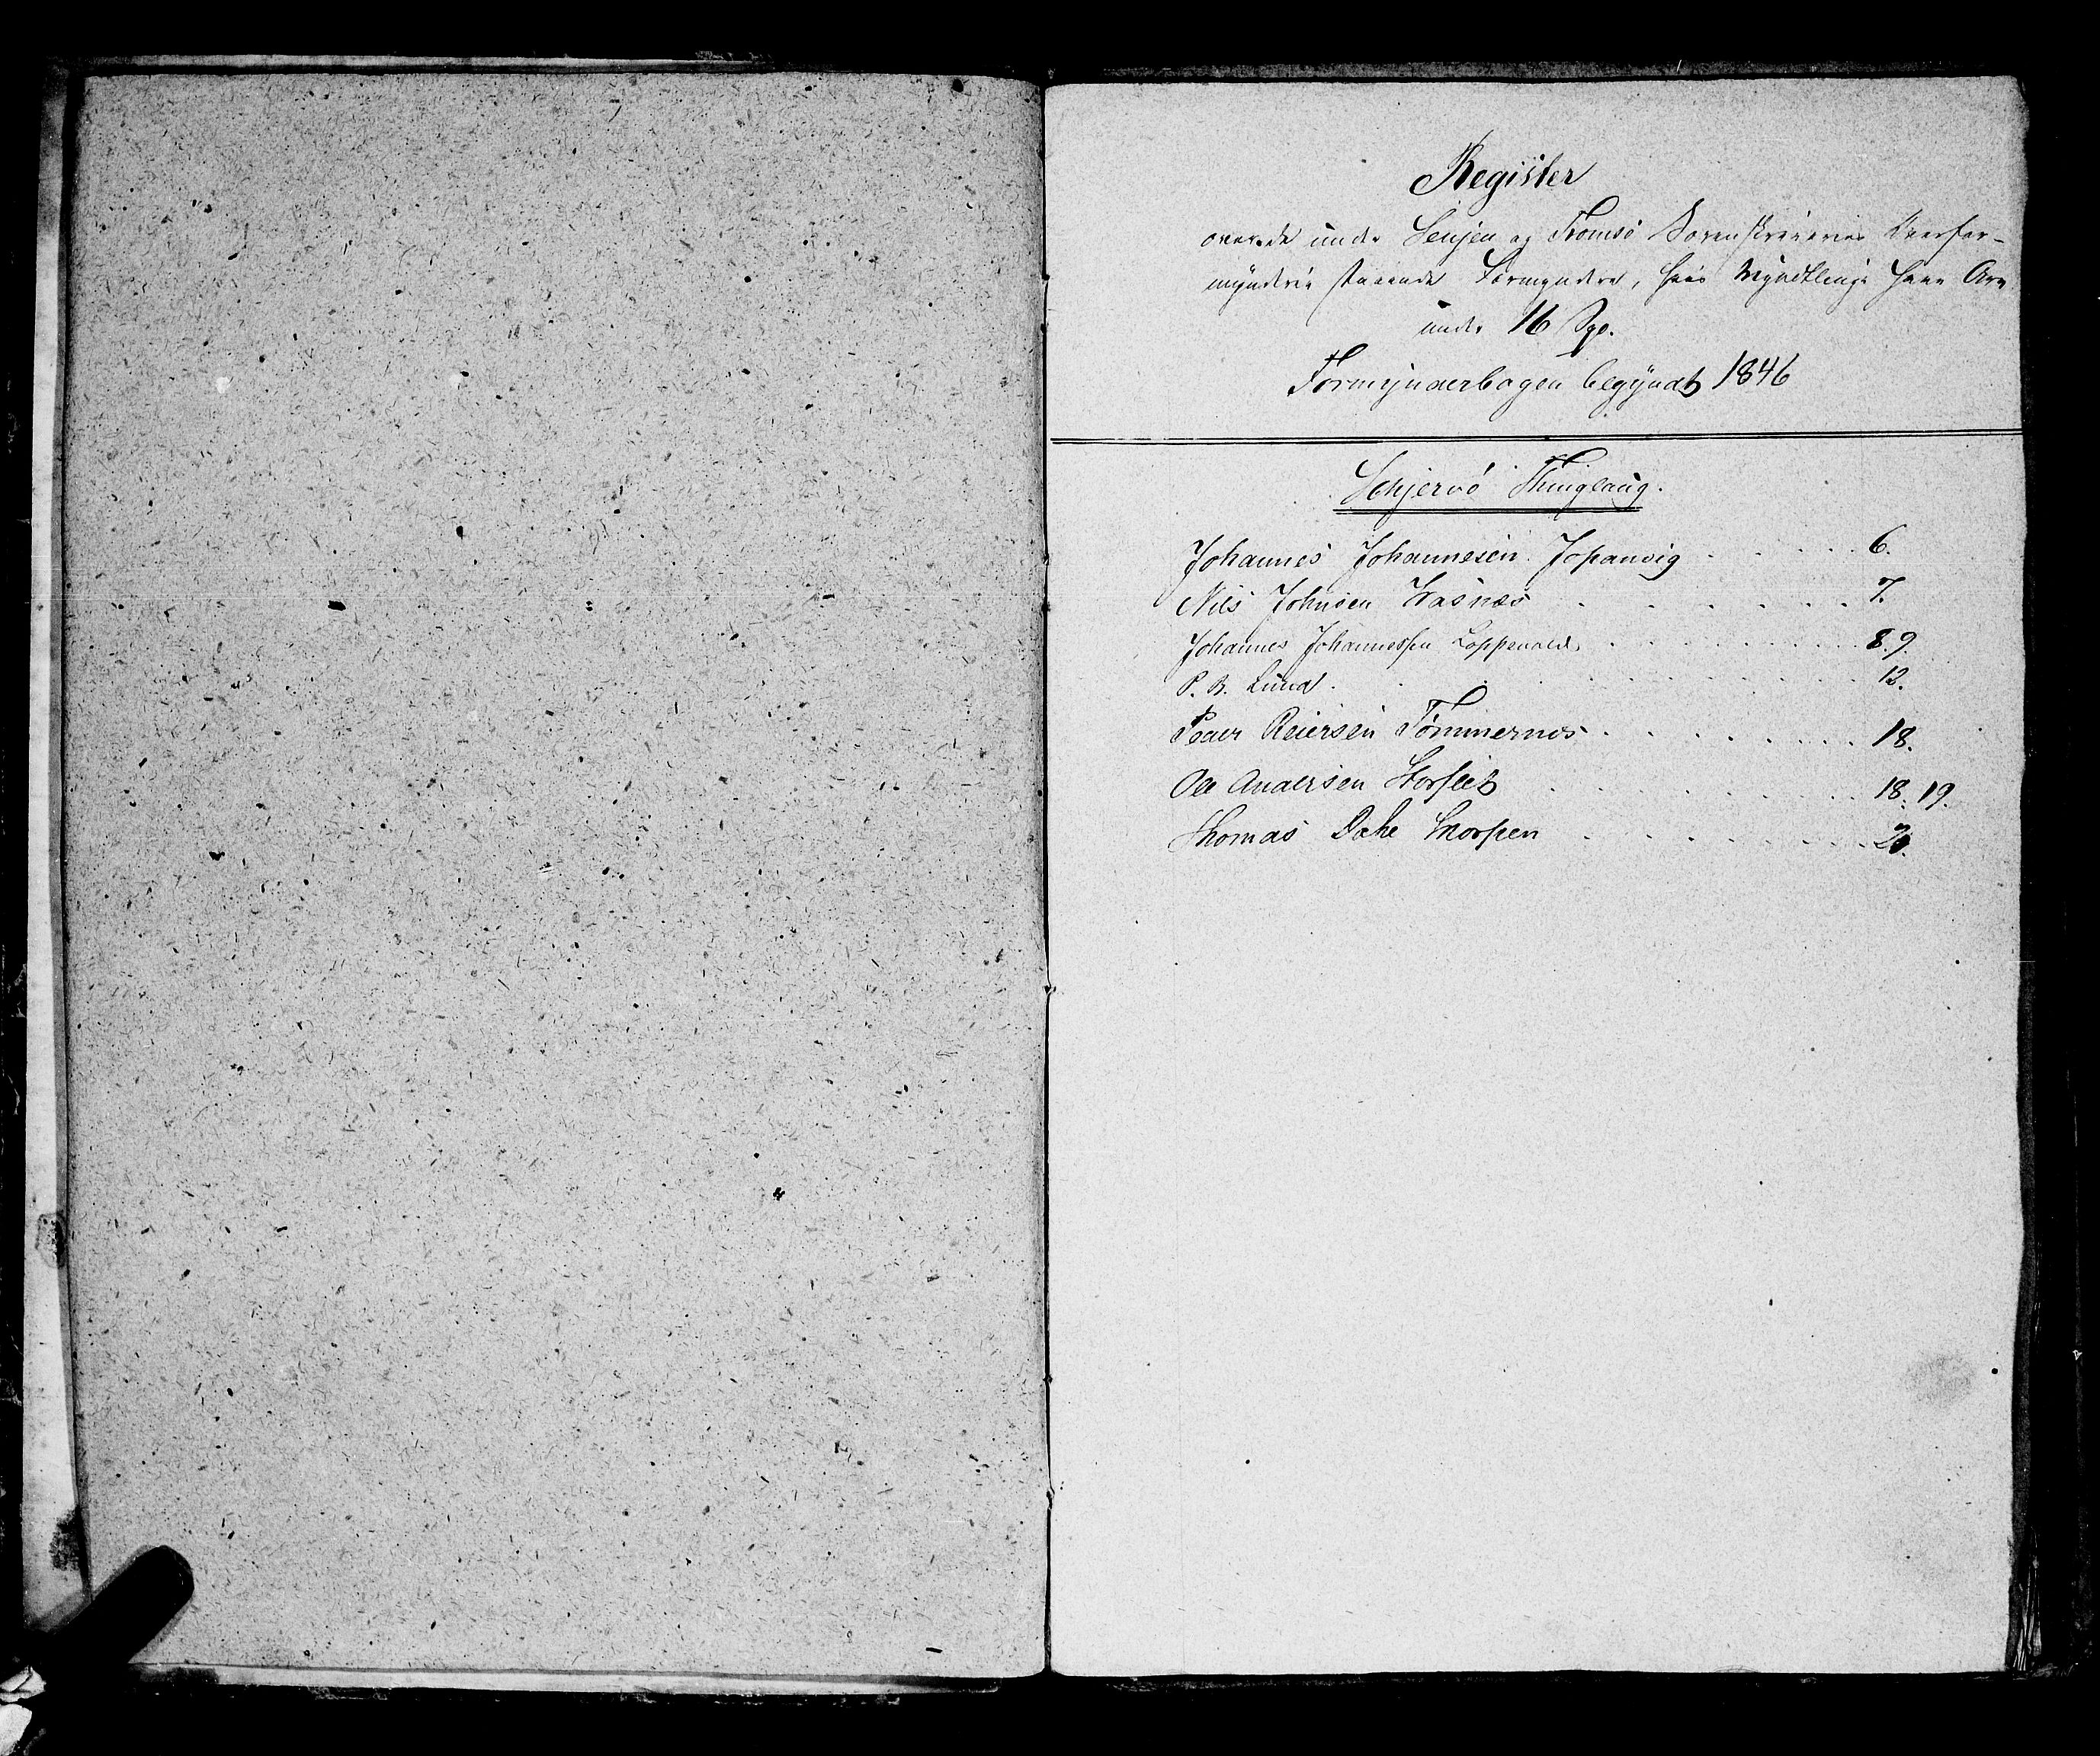 Register
over de under Senjen og Tromsø Sorenskriveries Overfor-
mynderie staaende Formyndere, hvis Myndtlinge have Arv
under 16 Sp.
Formynderbogen begyndt 1846
Schjervø Thinglaug.
Johannes Johannesen Jopanvig . . . . . 6.
Nils Johnsen Hasnæs . . . . . . . 7.
Johannes Johannessen Loppevold . . . . . . . 8. 9.
P. B. Lund . . . . . . . . . 12.
Peder Reiersen Tømmernes . . . . . . . 18.
Ole Andersen Storslet . . . . . . . 18. 19.
Thomas Dahl . . . . . . .